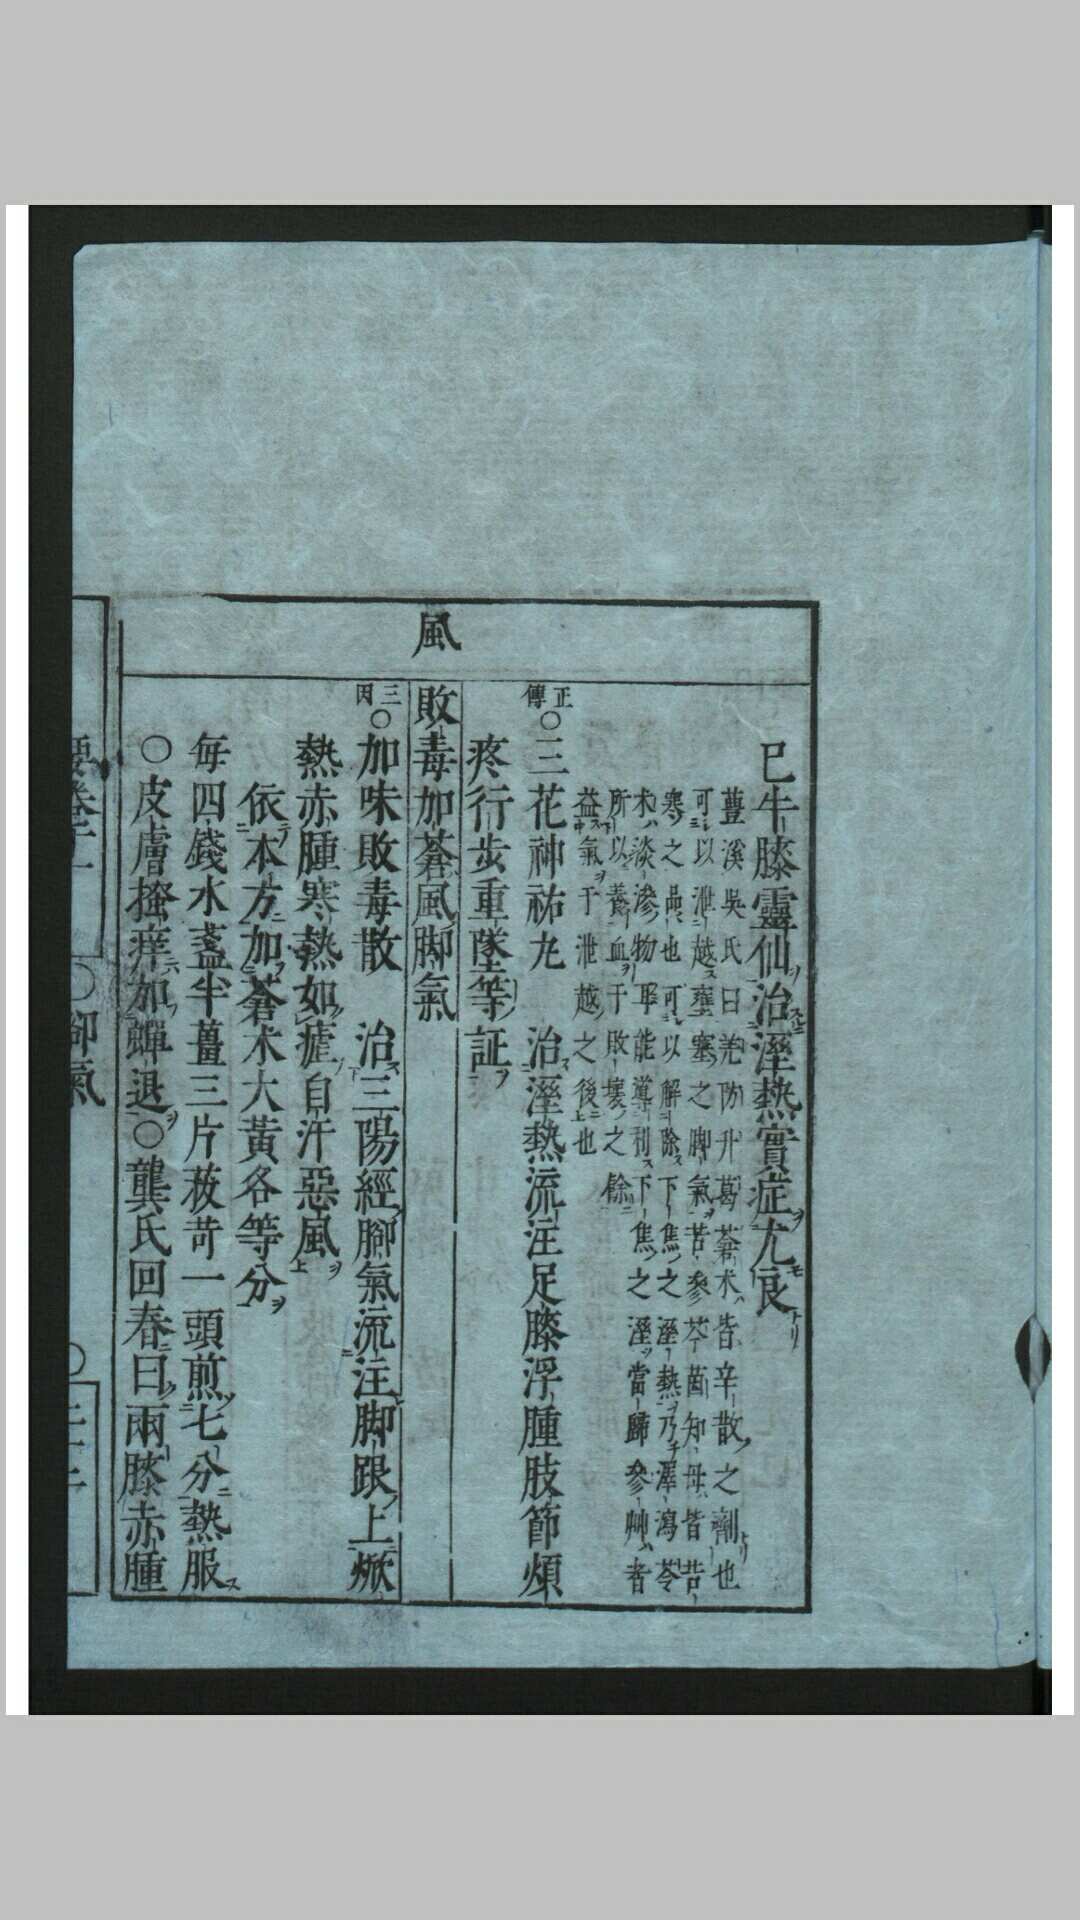 已牛膝靈仙治溼熱實症尤良
薑溪吳氏曰羌防升葛蒼朮皆辛散之劑也
可以泄越壅塞之脚氣苦參芩茵知母皆苦
寒之品也可以解除下焦之溼熱乃澤瀉苓
朮淡滲物耳能導利下焦之溼當歸參艸者
所以養血于敗壞之餘
益氣于泄越之後也
正傳○三花神祐丸 治溼熱流注足膝浮腫肢節煩
疼行步重墜等証
風
敗毒加蒼風脚氣
三因○加味敗毒散 治三陽經腳氣流注脚跟上焮
熱赤腫寒熱如瘧自汗惡風
依本方加蒼朮大黃各等分
每四錢水盞半薑三片菝苛一頭煎七分熱服
○皮膚搔痒加蟬退○龔氏回春曰兩膝赤腫
○腳氣